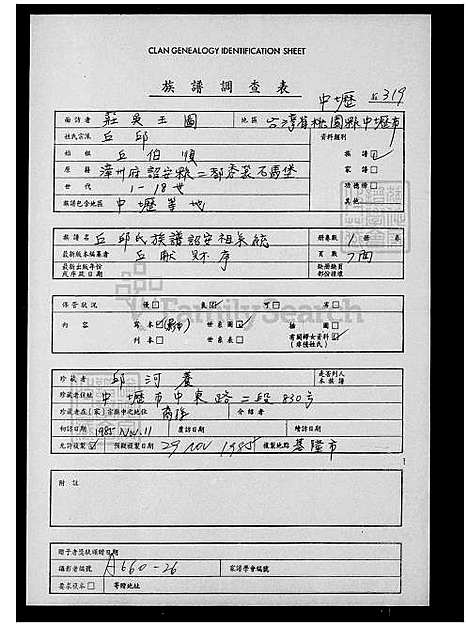 CLAN GENEALOGY IDENTIFICATION SHEET
族譜調查表
中壢 319
面訪者 莊吳玉圖 地區 台灣省桃園縣中壢市
姓氏宗派 丘邱 資料類別
始祖 丘伯順 族譜☑
原籍 漳州府詔安縣二都秀篆石馬堡 家譜□
世代 1-18世 功德榜□
族譜包含地區 中壢等地 其他
族譜名 丘邱氏族譜詔安祖系統 冊卷數 1冊 卷
最新版本編纂者 丘 頁數 7面
最新出版年份及序跋日期 缺冊缺頁部份損壞
保管狀況 優□ 良☑ 可□ 劣□
內容 寫本☑ 世系圖☑ 插圖□
刊本□ 世系表□ 有關婦女資料☑(非僅姓氏)
FamilySearch
珍藏者 邱河養 是否列入本族譜
珍藏者住址 中壢市中東路二段830号
珍藏者在(家)宗族中之地位 裔孫 介紹者
初訪日期 1985 Nov. 11 廣訪日期 續訪日期
允許複製☑ 預擬複製日期 29 NOV 1985 複製地點 基隆市
附註
贈予者獎狀頒贈日期
攝影者編號 A660-26 家譜學會編號
要求副本□ 寄贈地址